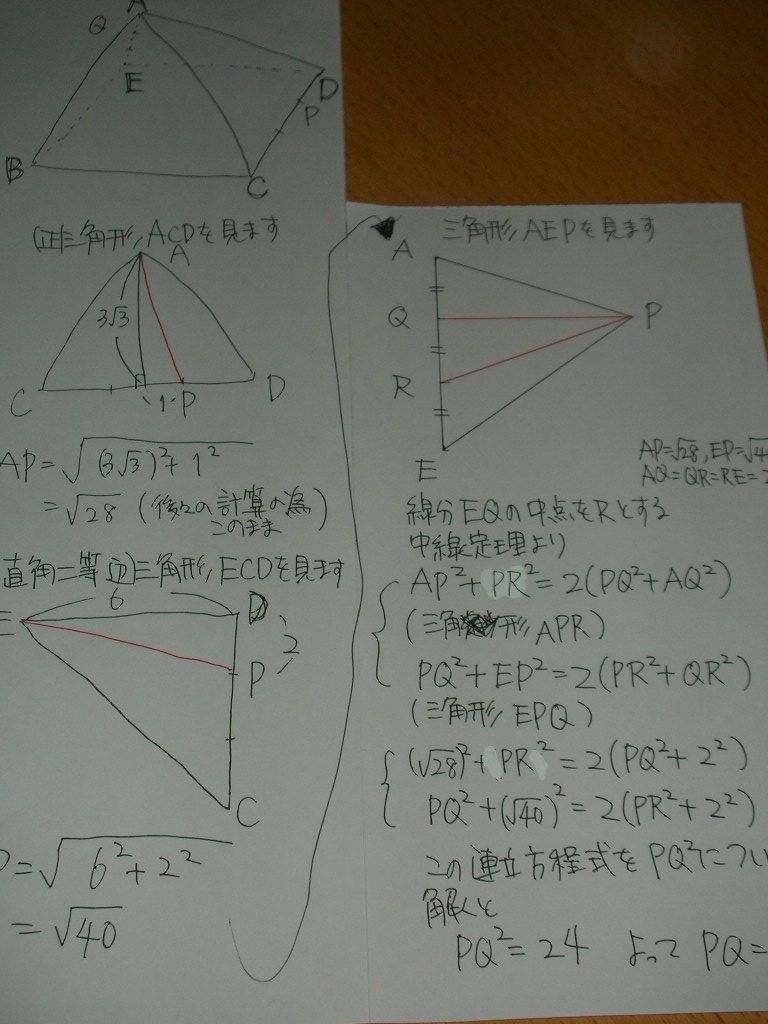 A
Q
E
D
P
B
C
(正)三角形ACDを見ます
A
3√3
C
1
P
D
AP=√(3√3)²+1²
=√28 (後々の計算の為
このまま)
直角二等辺三角形ECDを見ます
6
E
D
2
P
C
P=√6²+2²
=√40
三角形AEPを見ます
A
Q
P
R
E
AP=√28, EP=√4
AQ=QR=RE=2
線分EQの中点をRとする
中線定理より
AP²+PR²=2(PQ²+AQ²)
(三角形APR)
PQ²+EP²=2(PR²+QR²)
(三角形EPQ)
(√28)²+PR²=2(PQ²+2²)
PQ²+(√40)²=2(PR²+2²)
この連立方程式をPQ²につい
解くと
PQ²=24 よって PQ=